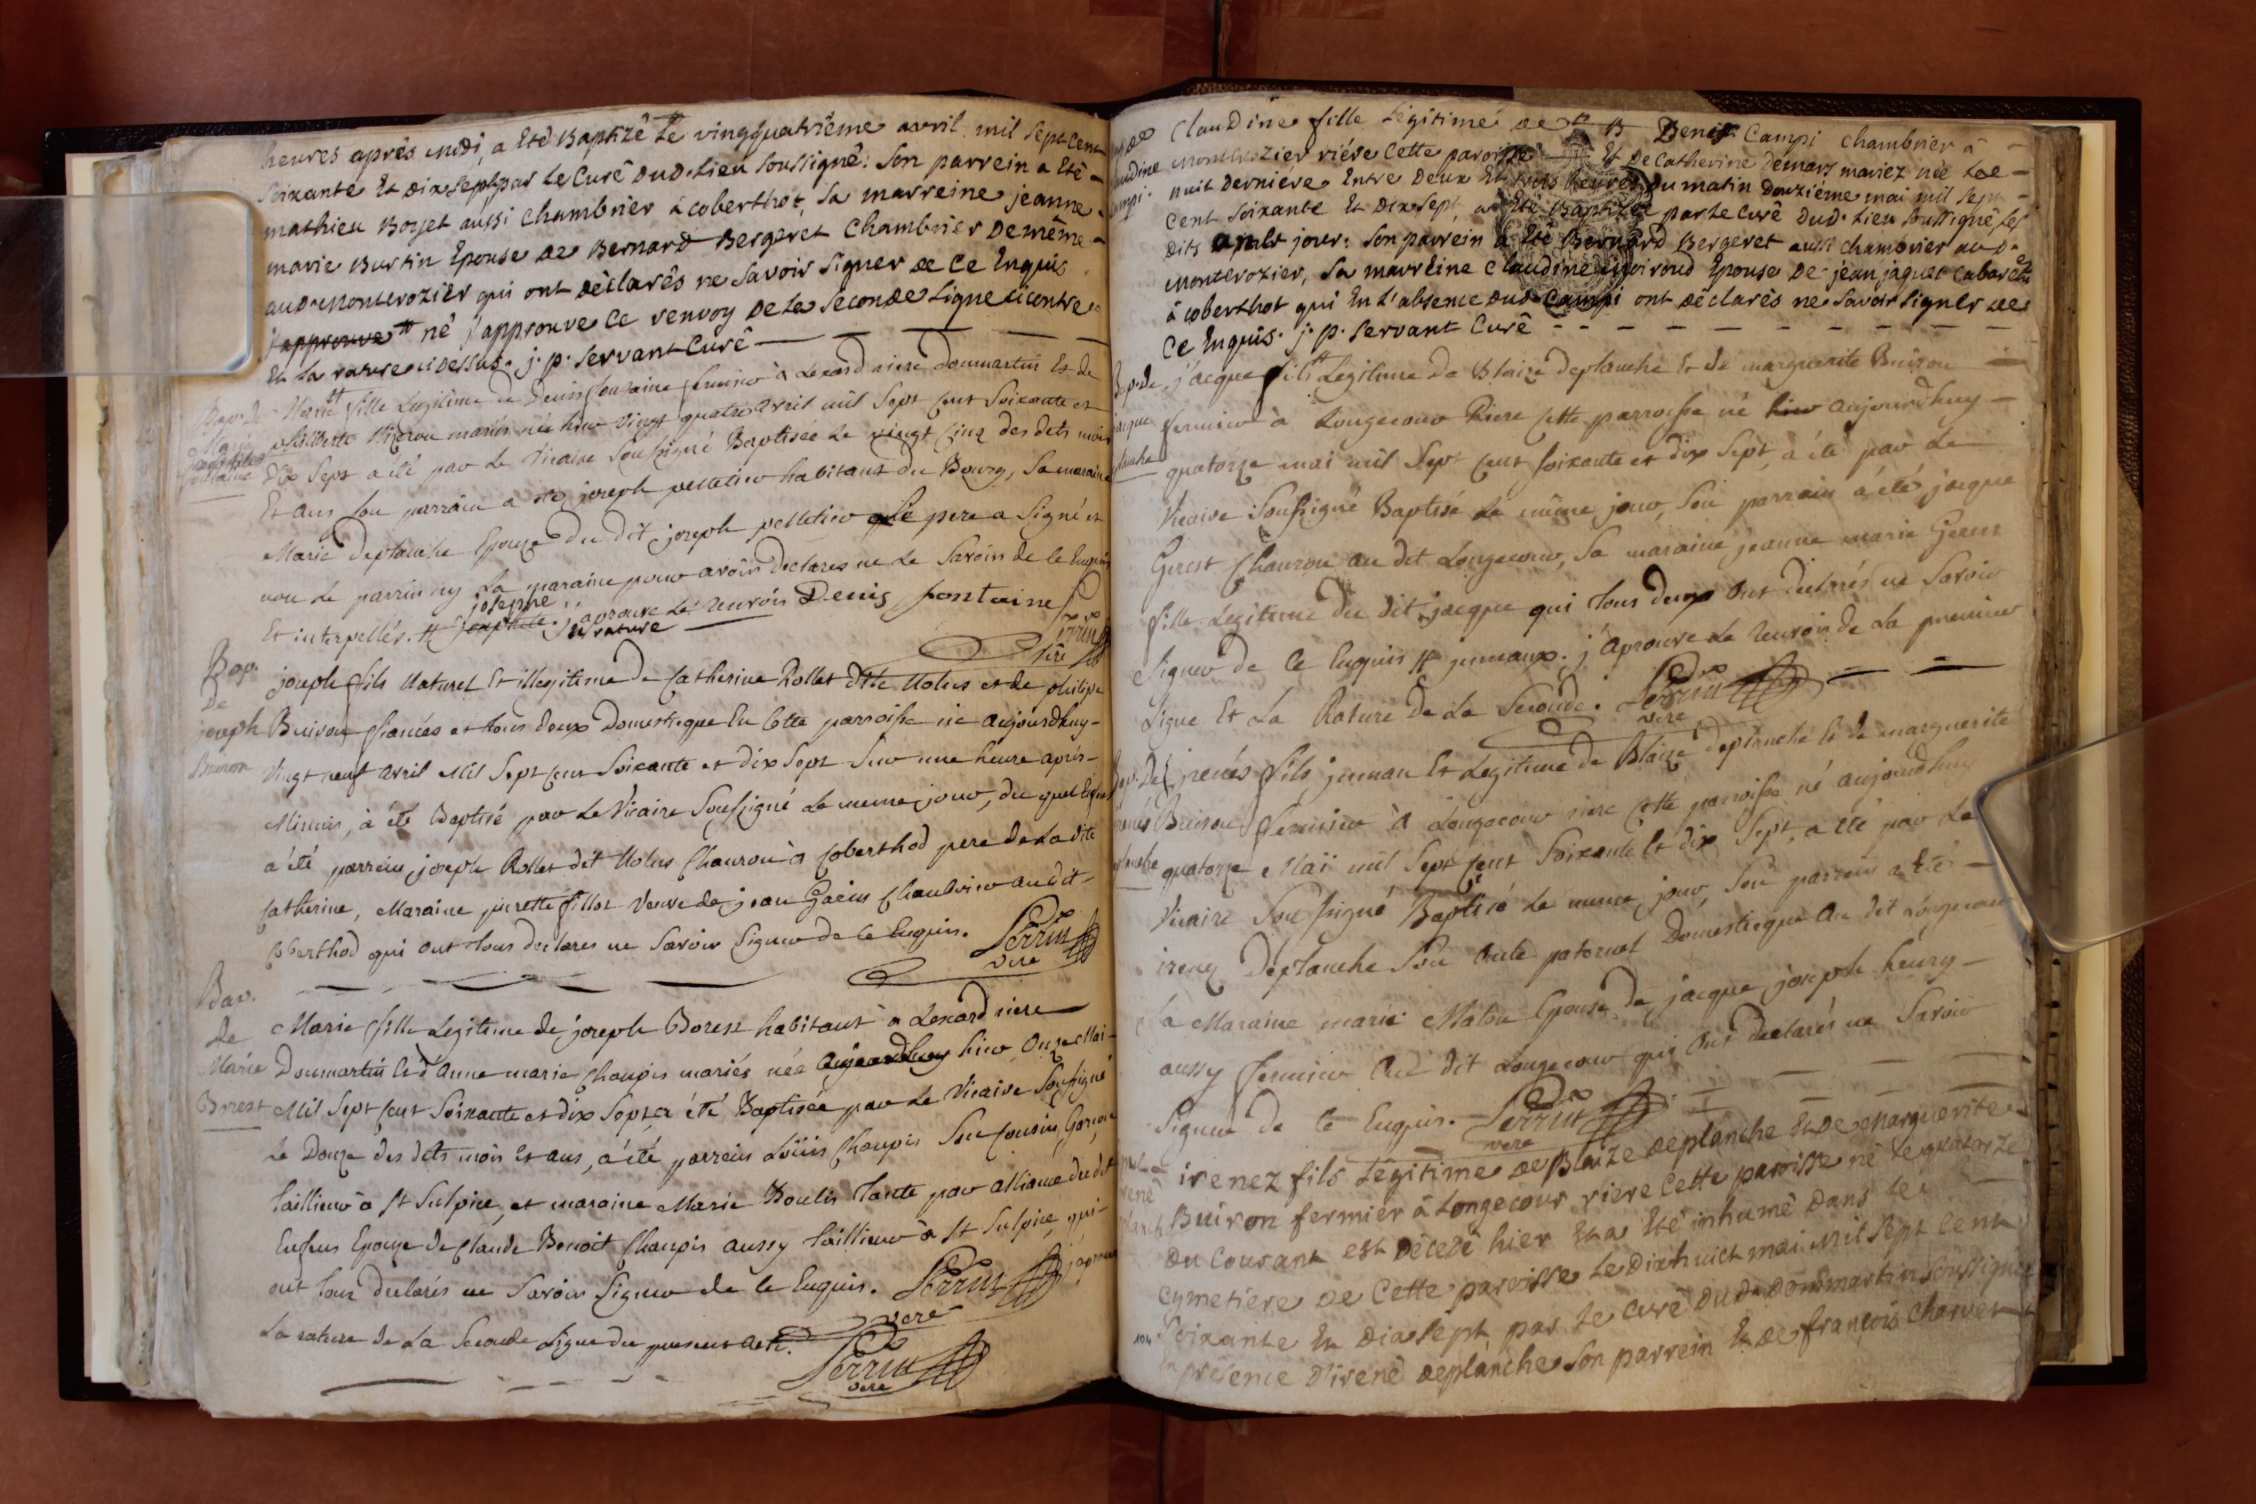 heures aprés midi, a Eté Baptizé Le vingtquatriême avril mil sept cent
soixante Et dix sept par Le Curé dud. Lieu soussigné: son parrein a Eté
mathieu Boyet aussi chambrier à coberthot, sa marreine jeanne
marie Burtin Epouse de Bernard Bergeret chambrier de même
aud. monterozier qui ont déclarés ne savoir signer de ce Enquis
j'approuve né j'approuve ce renvoy de La seconde Ligne cicontre
Et La rature cidessus. j. p. servant curé
Bap. de
Marie
josephte
fontaine
Marie fille Legitime de Denis fontaine fermier à Lezard riere dommartin Et de
mariés née hier vingt quatre avril mil sept cent soixante et
dix sept a été par Le Vicaire soussigné Baptisée Le vingt cinq des dits mois
Et ans son parrain a été joseph pelletier habitant du Bourg, sa maraine
Marie Deplanche Epouze du dit joseph pelletier Le pere a signé et
non Le parrin ny La maraine pour avoir declarés ne Le savoir de ce Enquis
Et interpellés. josephte j'aprouve Le renvois Denis fontaine
La rature
Perrin
vire
Bap.
De
joseph
Buiron
joseph fils naturel Et illegitime de Catherine Rollet dite et de philipe
Buiron fiancés et tous deux Domestique En Cette parroisse né aujourdhuy
vingt neuf avril mil sept cent soixante et dix sept sur une heure aprés
minuis, a été Baptisé par Le Vicaire soussigné Le meme jour, du quel
a été parrein joseph Rollet dit à Coberthod pere de La dite
Catherine, Maraine pierrette fillot veuve de jean audit
Coberthod qui ont tous declarés ne savoir signer de ce Enquis. Perrin
vire
Bap.
de
Marie
Borest
Marie fille Legitime de joseph Borest habitant à Lezard riere
Dommartin Et d'anne marie Chapis mariés née aujourdhuy hier onze Mai
Mil sept cent soixante et dix sept a été Baptisée par Le Vicaire soussigné
Le Douze des dits mois Et ans, a été parrein Loüis Chapis son Cousin, Garçon
taillieur à St Sulpice, et maraine Marie tante par alliance du dit
Enfens Epouze de Claude Benoit Chapis aussy taillieur à St Sulpice, qui
ont tous declarés ne savoir signer de ce Enquis. Perrin
vire
La rature de La seconde Ligne du present acte.
Perrin
vire
Claudine fille Légitime de Denis Campi chambrier à
monterozier riére cette paroisse Et de Catherine demars mariez née La
nuit derniére Entre deux Et trois heures du matin douziéme mai mil sept
cent soixante Et dix sept, a Eté Baptizée par Le Curé dud. Lieu soussigné Les
dits an et jour: son parrein a Eté Bernard Bergeret aussi chambrier aud.
monterozier, sa marreine Claudine moiroud Epouse de jean jaquet
à coberthot qui En L'absence dud. Campi ont déclarés ne savoir signer de
ce Enquis. j. p. servant Curé
Bap. de
jacque
planche
jacque fils Legitime de Blaize deplanche Et de marguerite Buiron
fermier à Longecour Riere Cette parroisse né hier aujourdhuy
quatorze mai mil sept cent soixante et dix sept, a été par Le
Vicaire soussigné Baptisé Le même jour, son parrain a été jacque
Gerest au dit Longecour, sa maraine jeanne marie Gerest
fille Legitime du dit jacque qui tous deux ont declarés ne savoir
signer de Ce Enquis jumaux. j'aprouve Le renvois de La premier
Ligne Et La Rature De La seconde. Perrin
vire
Bap. De
irenés fils jumau Et Legitime de Blaize deplanche Et de marguerite
Buiron fermier à Longecour riere Cette parroisse né aujourdhuy
quatorze Maï mil sept cent soixante Et dix sept, a été par Le
Vicaire soussigné Baptisé Le meme jour, son parrein a été
irenez Deplanche son oncle paternel Domestique au dit Longecour
sa Maraine marie Epouse de jacque joseph henry
aussy fermier au dit Longecour qui ont declarés ne savoir
signer de ce Enquis. Perrin
vire
irenez fils Légitime de Blaize deplanche Et de marguerite
Buiron fermier à Longecour riere cette paroisse né Le quatorze
du courant est décédé hier Et a Eté inhumé dans Le
cymetiere de cette paroisse Le dixhuict mai mil sept cent
soixante Et dix sept, par Le Curé dud. Dommartin soussigné
En présence d'irené deplanche son parrein Et de françois charvet
104